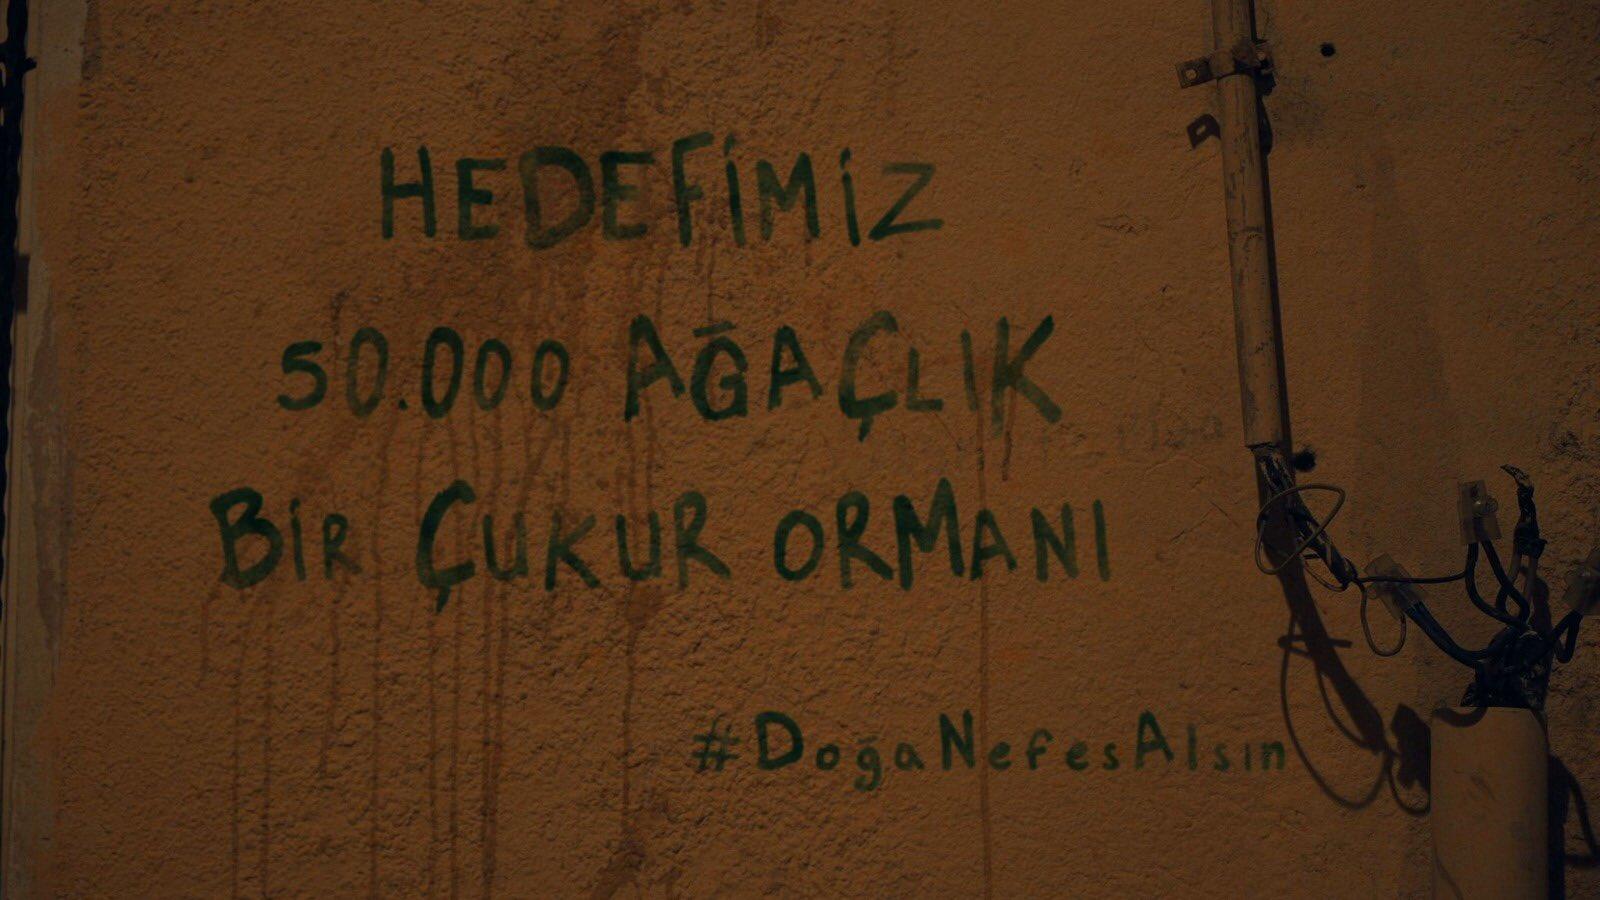 HEDEFİMİZ
50.000 AĞAÇLIK
BİR ÇUKUR ORMANI
#DoğaNefesAlsın